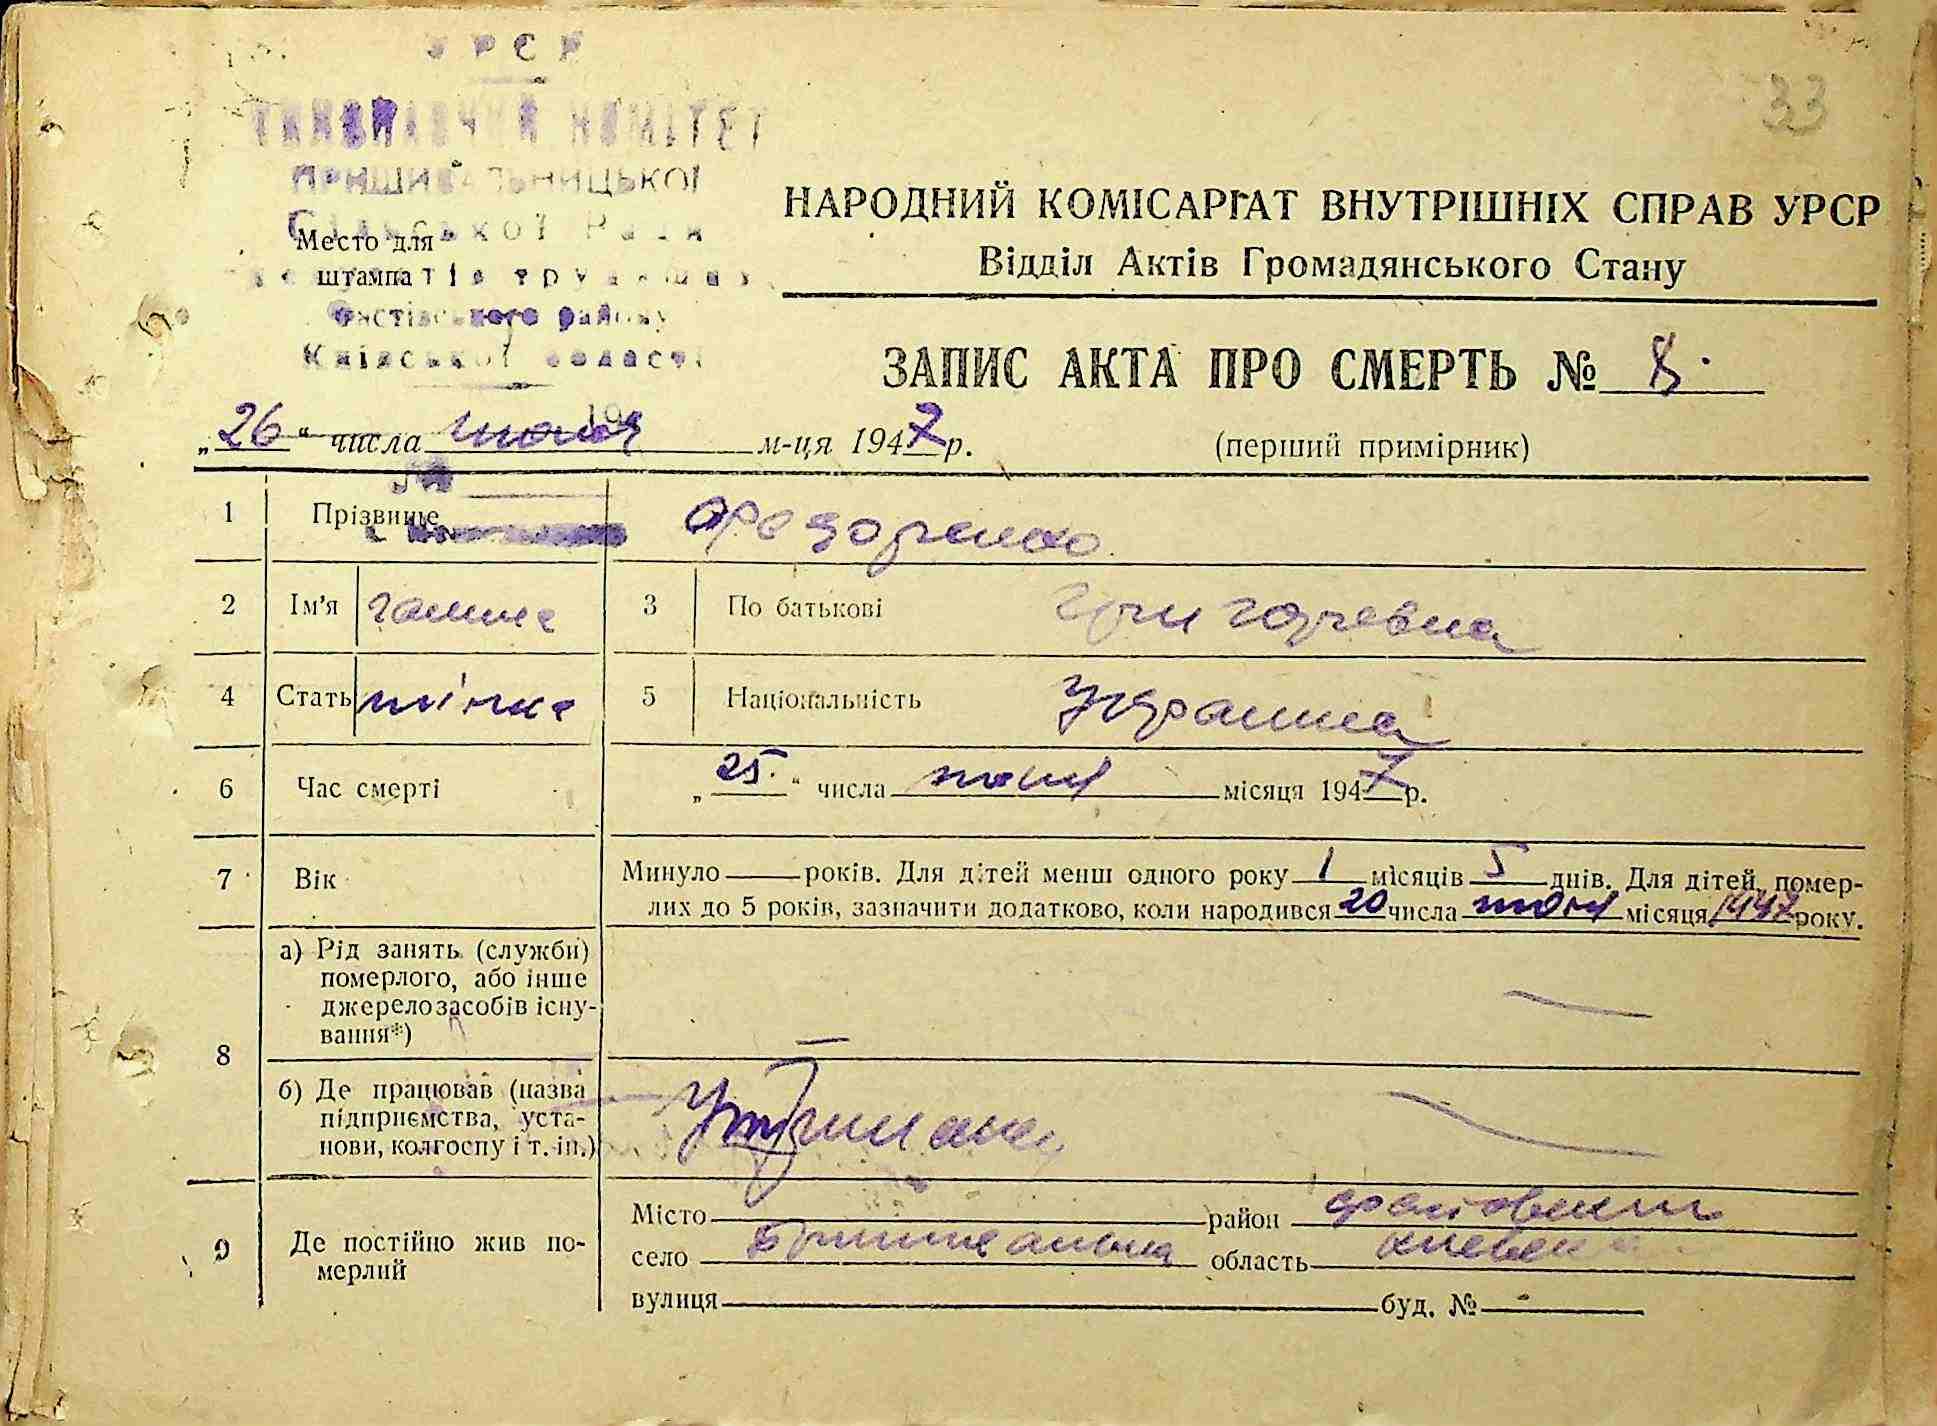 УРСР
ВИКОНАВЧИЙ КОМІТЕТ
ПРИШИВАЛЬНИЦЬКОЇ
Сільської Ради
Место для
штампа
депутатів трудящих
Фастівського району
Київської області
33
НАРОДНИЙ КОМІСАРІАТ ВНУТРІШНІХ СПРАВ УРСР
Відділ Актів Громадянського Стану
ЗАПИС АКТА ПРО СМЕРТЬ № 8.
„26“ числа июня м-ця 1947 р.
(перший примірник)
1 Прізвище Федоренко
2 Ім'я Галина 3 По батькові Григоревна
4 Стать жінка 5 Національність Украинка
6 Час смерті „25.“ числа июня місяця 1947 р.
7 Вік Минуло — років. Для дітей менш одного року 1 місяців 5 днів. Для дітей, помер-
лих до 5 років, зазначити додатково, коли народився 20 числа місяця 1947 року.
8 а) Рід занять (служби)
померлого, або інше
джерело засобів існу-
вання*)
б) Де працював (назва
підприємства, уста-
нови, колгоспу і т. ін.)
9 Де постійно жив по-
мерлий
Місто район Фастовский
село область Киевска
вулиця буд. № -